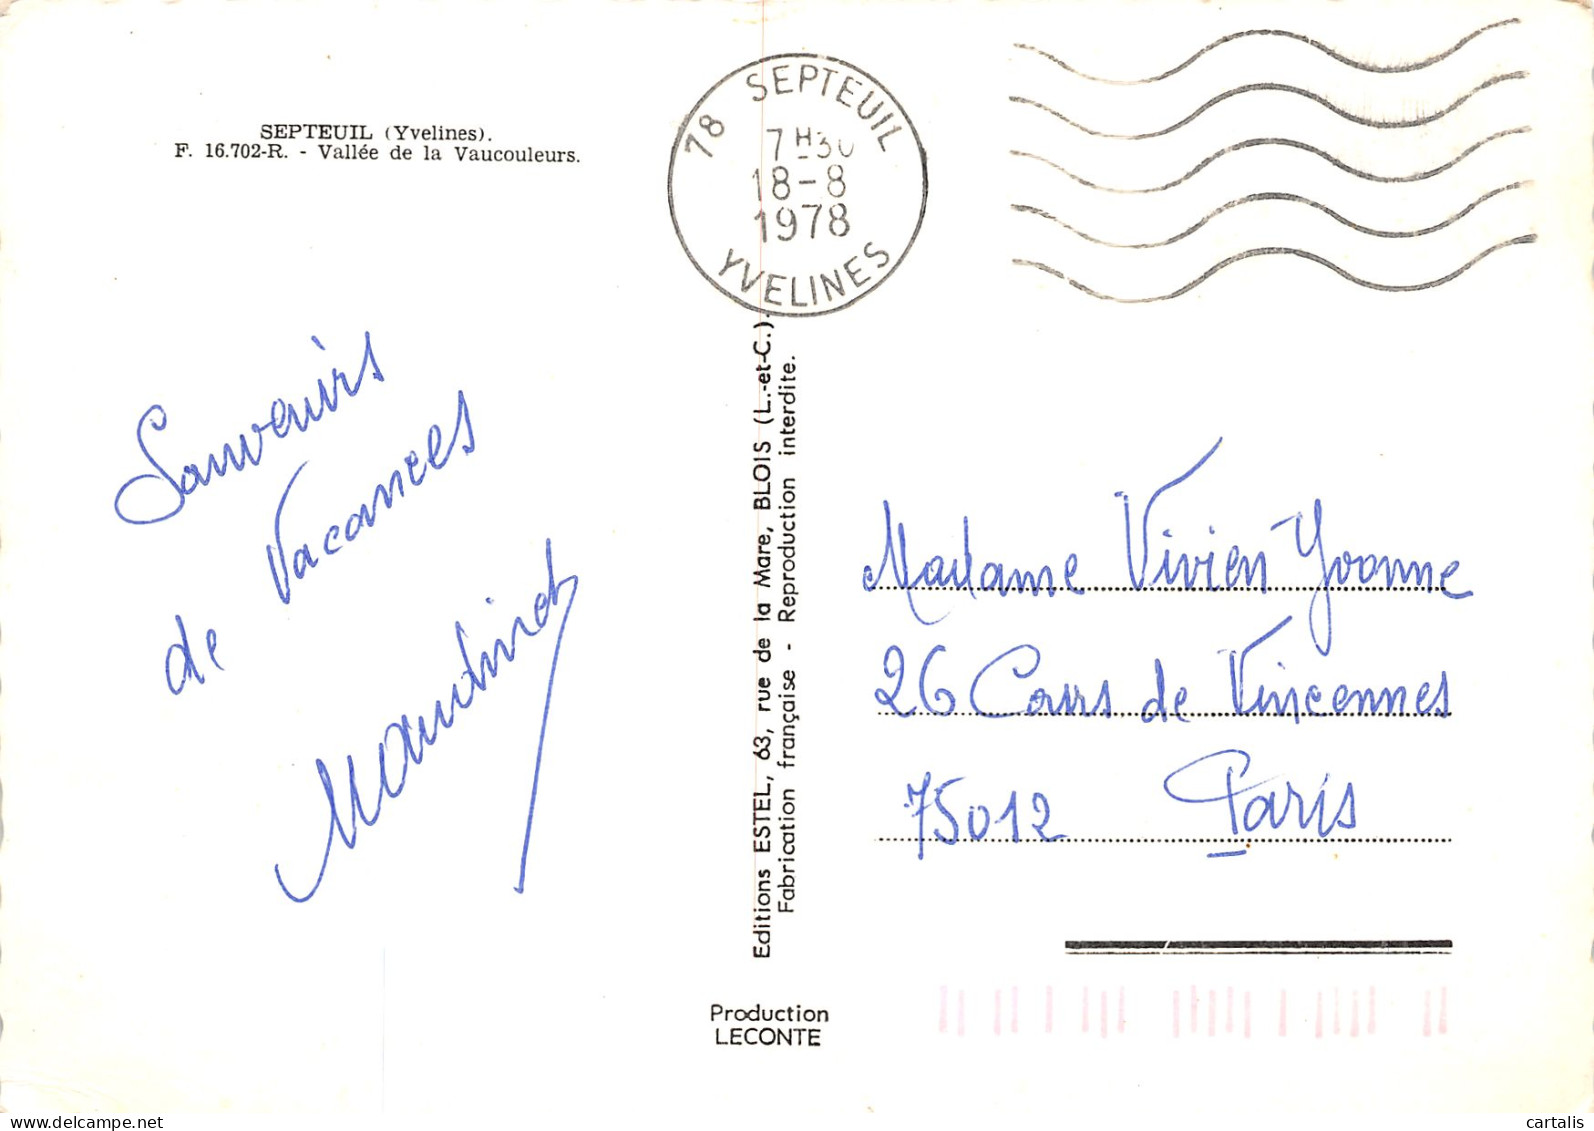 SEPTEUIL (Yvelines).
F. 16.702-R. - Vallée de la Vaucouleurs.
78 SEPTEUIL
7H30
18-8
1978
YVELINES
Souvenirs
de Vacances
Editions ESTEL, 63, rue de la Mare, BLOIS (L.-et-C.).
Fabrication française - Reproduction interdite.
Madame Vivien Yvonne
26 Cours de Vincennes
75012 Paris
Production
LECONTE
cartalis
delcampe.net